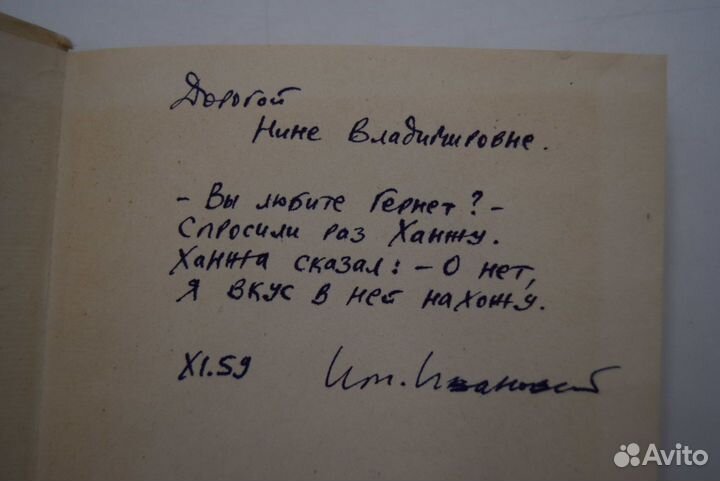 Дорогой
Нине Владимировне.
- Вы любите Гернет? -
Спросили раз Ханжу.
Ханжа сказал: - О нет,
Я вкус в ней нахожу.
XI.59
Avito